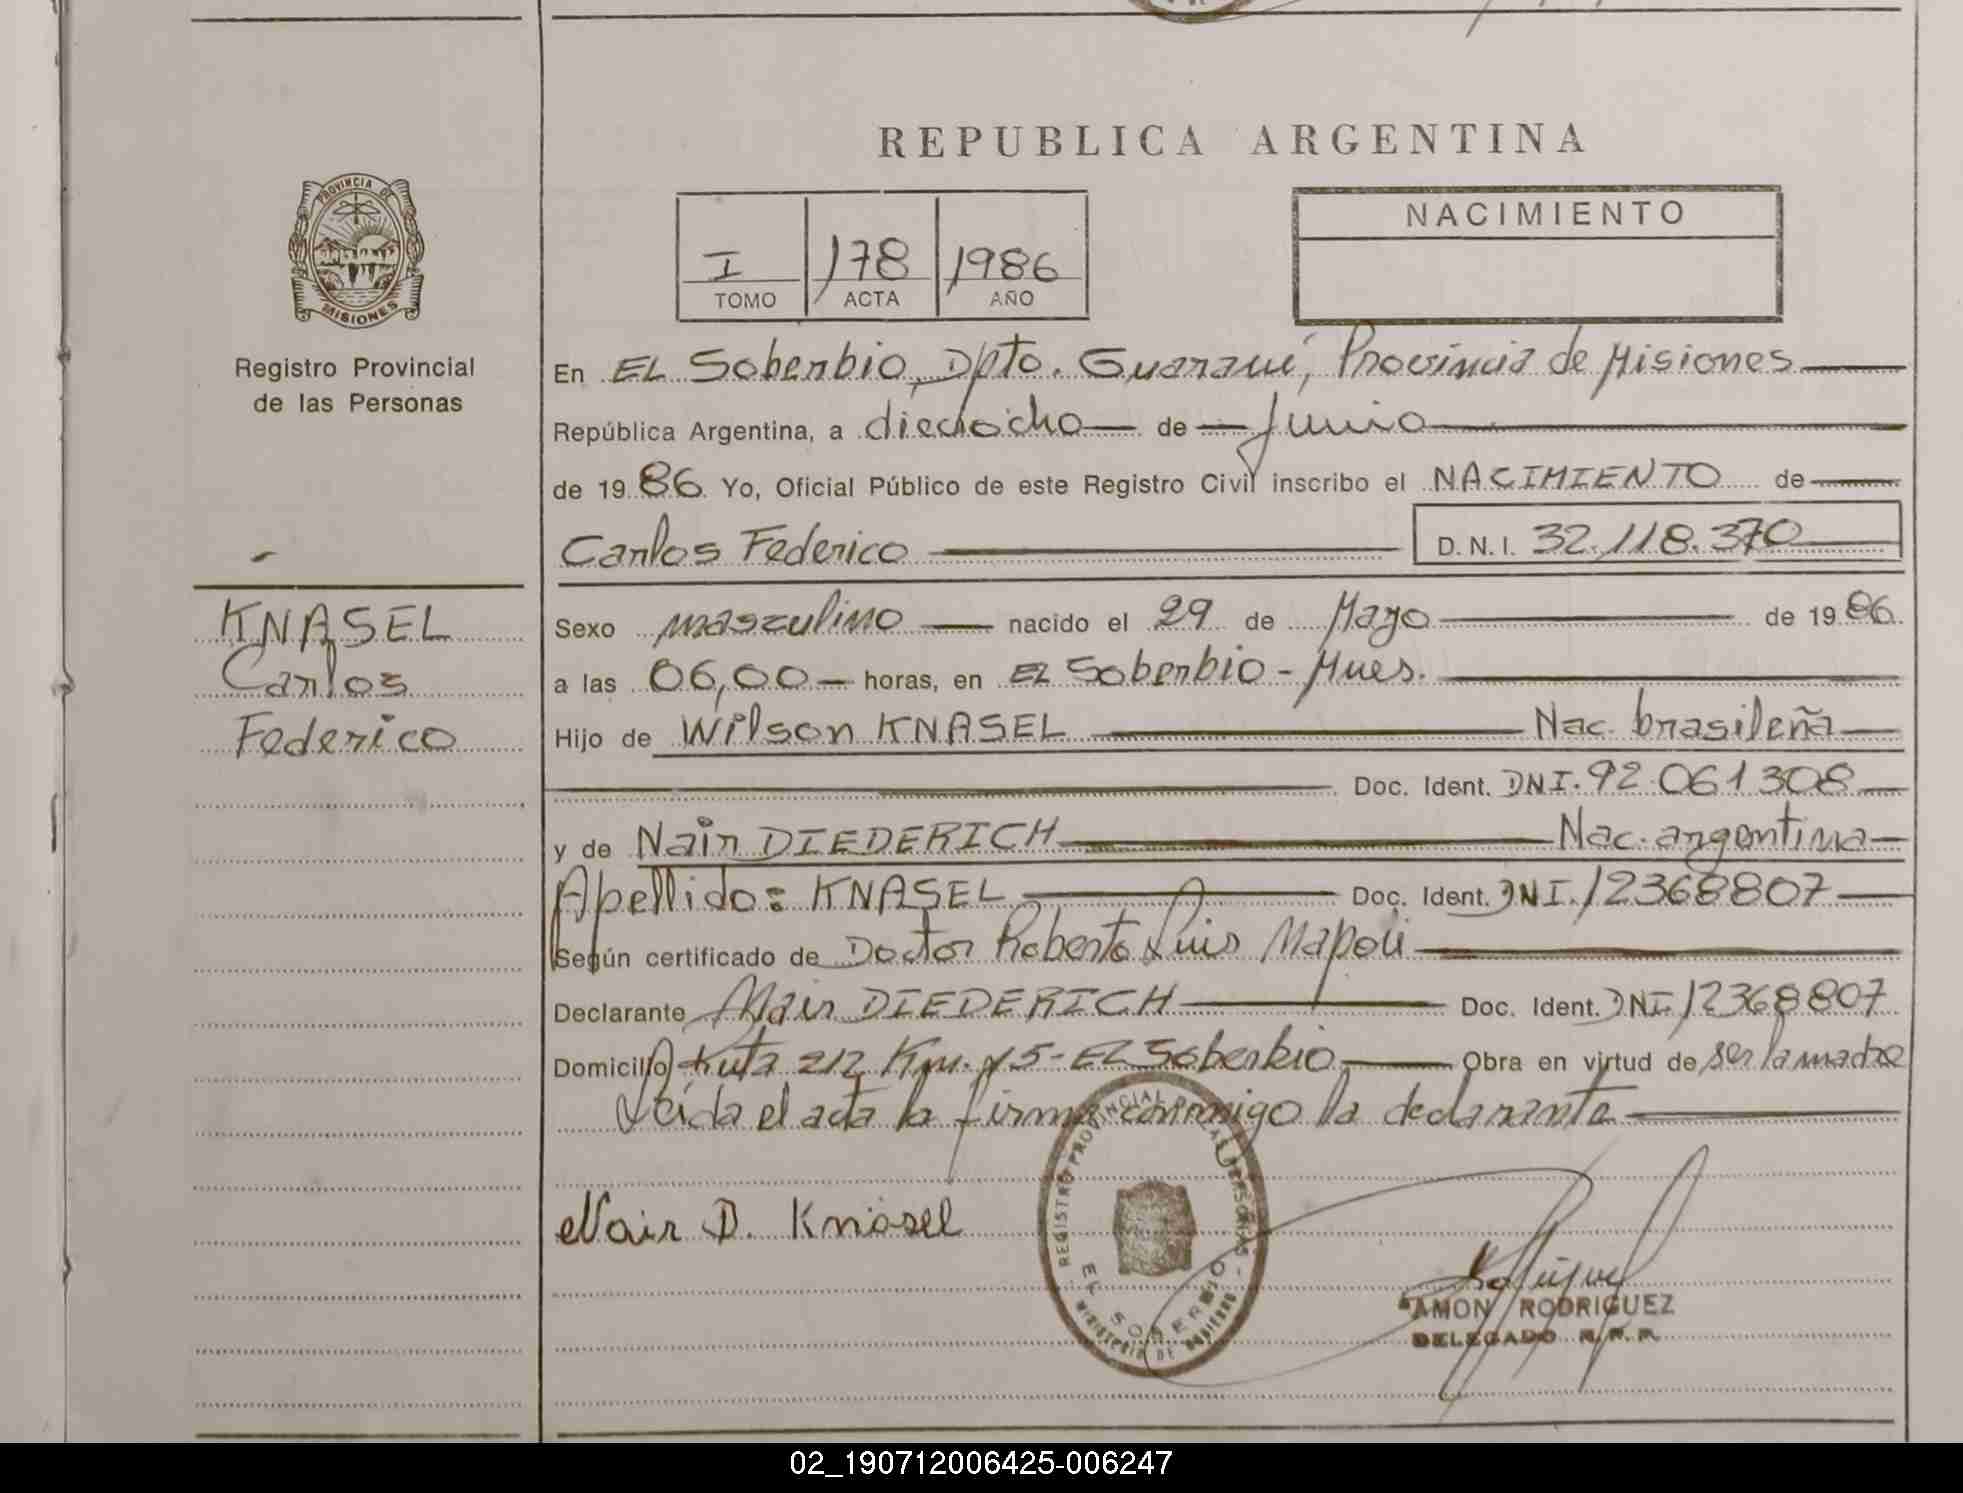 REPUBLICA ARGENTINA
PROVINCIA DE
MISIONES
Registro Provincial
de las Personas
I 178 1986
TOMO ACTA AÑO
NACIMIENTO
En EL Soberbio, Dpto. Guaraní, Provincia de Misiones
República Argentina, a dieciocho de Junio
de 1986 Yo, Oficial Público de este Registro Civil inscribo el NACIMIENTO de
Carlos Federico D.N.I. 32.118.370
KNASEL
Carlos
Federico
Sexo masculino nacido el 29 de Mayo de 1986
a las 06,00 horas, en EL Soberbio - Mnes.
Hijo de Wilson KNASEL Nac. brasileña
Doc. Ident. DNI. 92.061.308
y de Nair DIEDERICH Nac. argentina
Apellido: KNASEL Doc. Ident. DNI. 12368807
Según certificado de Doctor Roberto Luis Napoli
Declarante Nair DIEDERICH Doc. Ident. DNI 12368807
Domicilio Ruta 212 Km. - EL Soberbio Obra en virtud de ser la madre
Leída el acta la firma conmigo la declarante
Nair D. Knasel
REGISTRO PROVINCIAL DE LAS PERSONAS
EL SOBERBIO
MINISTERIO DE GOBIERNO
RAMON RODRIGUEZ
DELEGADO R.P.P.
02_190712006425-006247